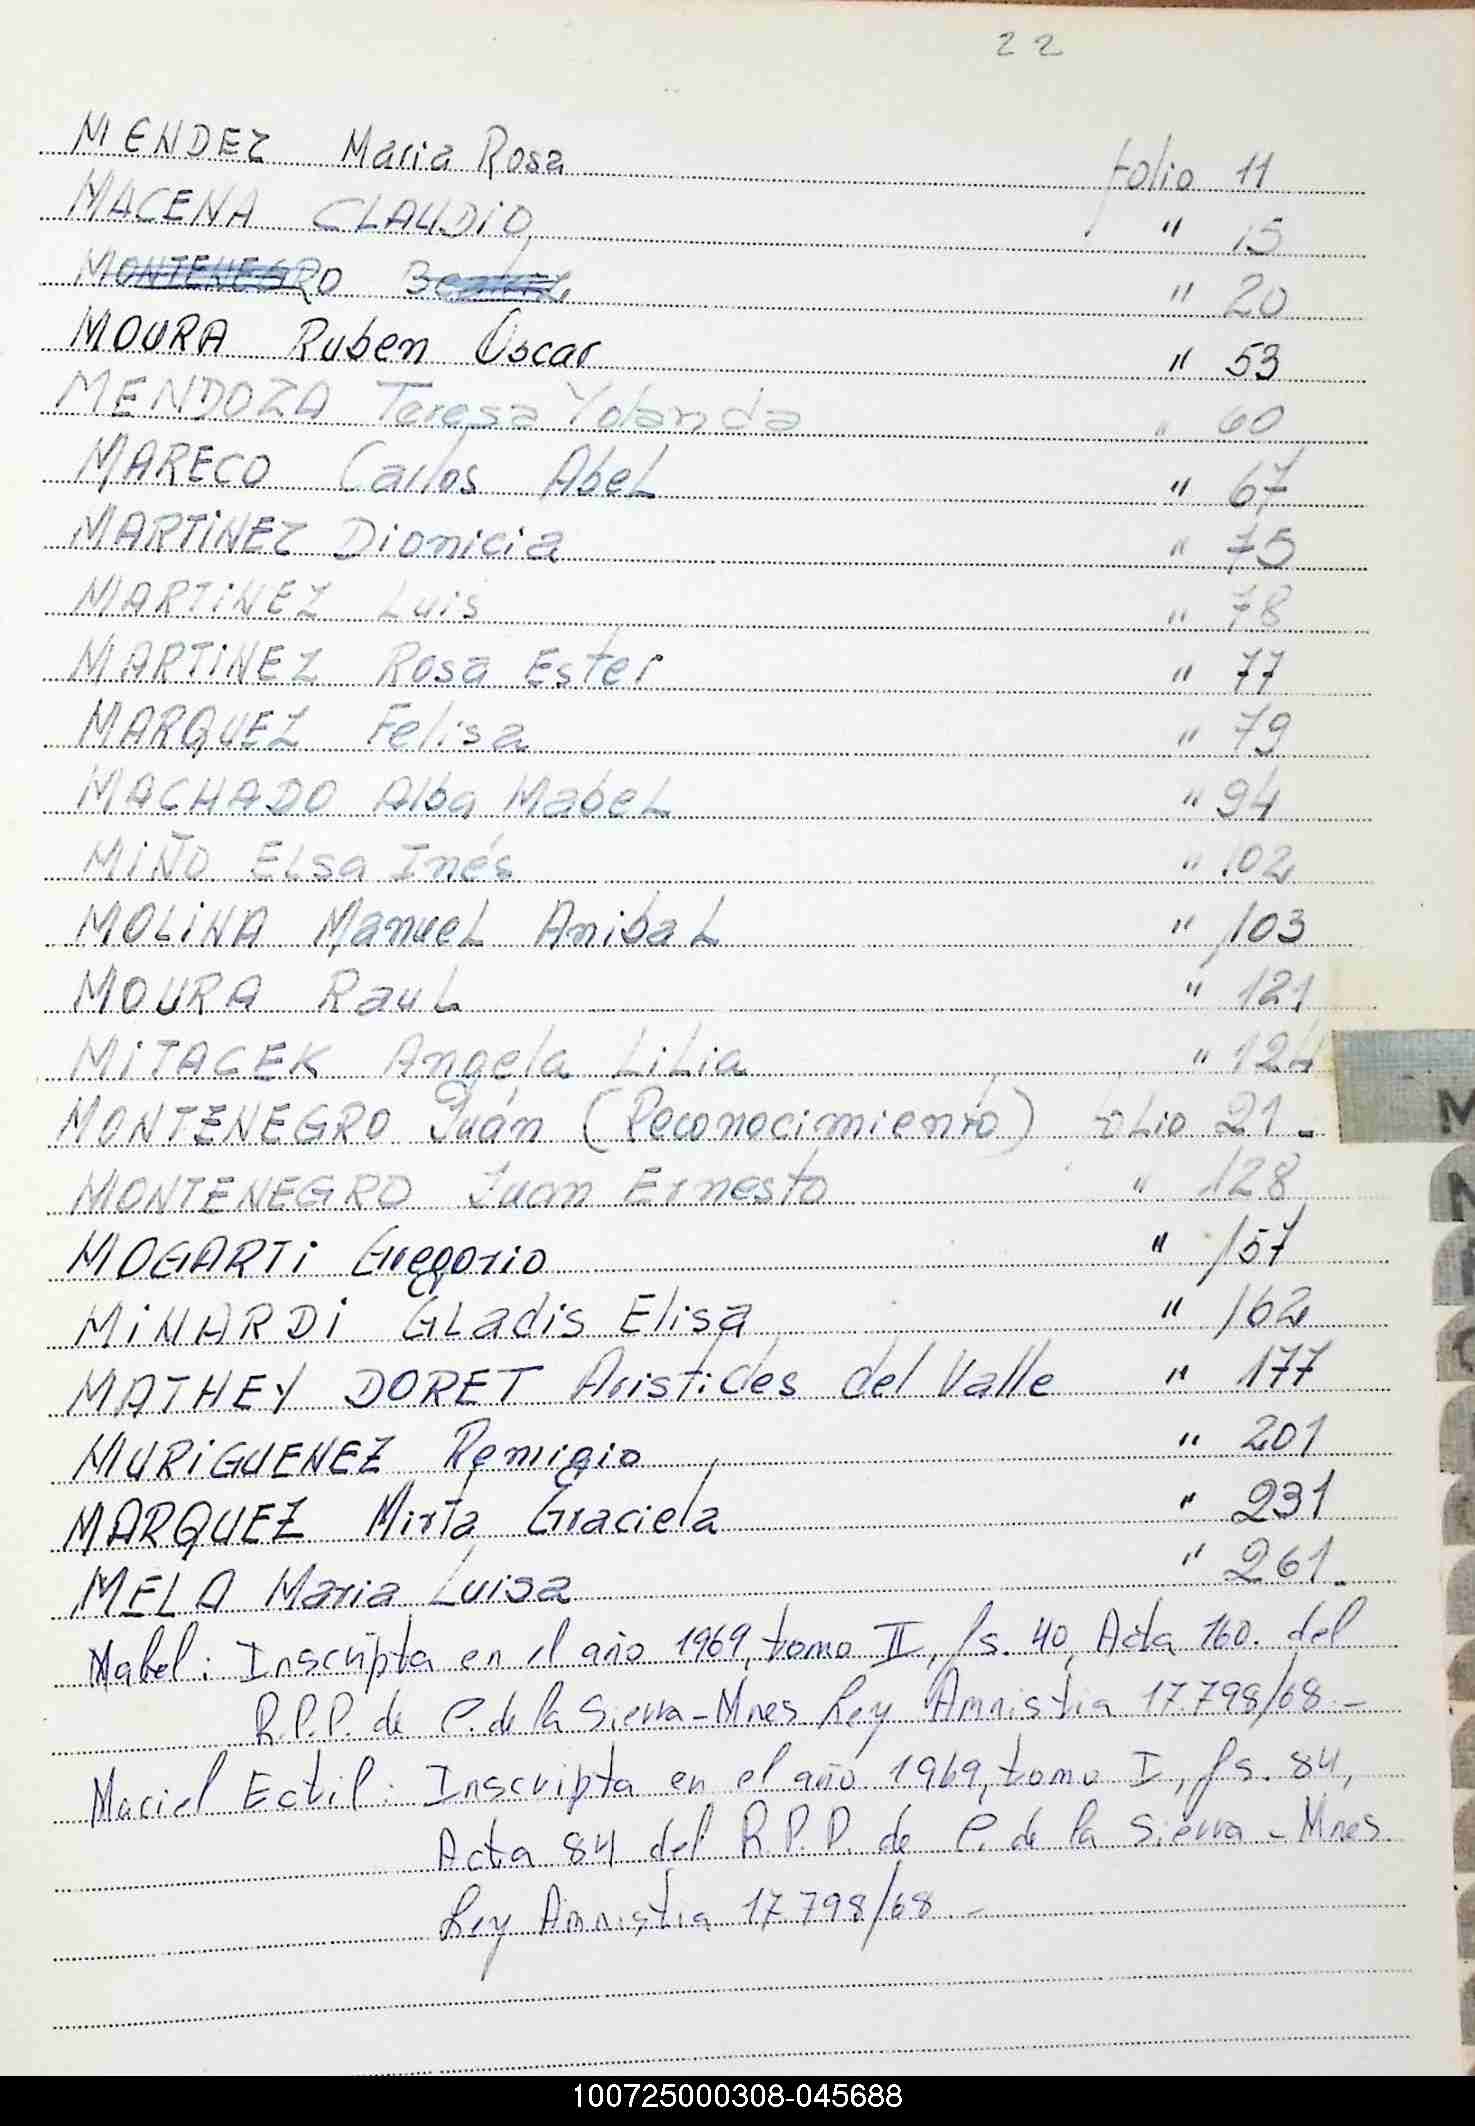 22
MENDEZ Maria Rosa folio 11
MACENA CLAUDIO " 15
MONTENEGRO " 20
MOURA Ruben Oscar " 53
MENDOZA Teresa Yolanda " 60
MARECO Carlos Abel " 67
MARTINEZ Dionicia " 75
MARTINEZ Luis " 78
MARTINEZ Rosa Ester " 77
MARQUEZ Felisa " 79
MACHADO Alba Mabel " 94
MIÑO Elsa Inés " 102
MOLINA Manuel Anibal " 103
MOURA Raul " 121
MITACEK Angela Lilia " 124
MONTENEGRO Juán (Reconocimiento) folio 21-
MONTENEGRO Juan Ernesto " 128
MOGARTI Gregorio " 157
MINARDI Gladis Elisa " 162
MATHEY DORET Aristides del Valle " 177
MURIGUENEZ Remigio " 201
MARQUEZ Mirta Graciela " 231
MELA Maria Luisa " 261-
Mabel: Inscripta en el año 1969, tomo II, fs. 40, Acta 160. del
R.P.P. de C. de la Sierra - Mnes. Ley Amnistia 17.798/68 -
Maciel Ectil: Inscripta en el año 1969, tomo I, fs. 84,
Acta 84 del R.P.P. de C. de la Sierra - Mnes.
Ley Amnistia 17.798/68 -
M
N
100725000308-045688